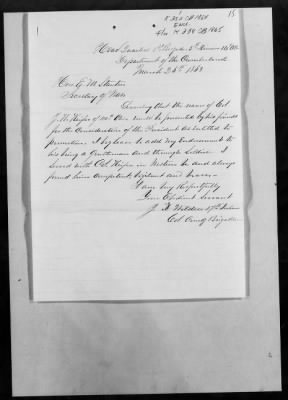 15
K 350 CB 1864
Encl.
F/w H 390 CB 1865
Head Quarters 1st Brigade 5th Division 14 A.C.
Department of the Cumberland
March 26th 1863
Hon E. M. Stanton
Secretary of War
Learning that the name of Col
J. W. of Ohio will be presented by his friends
for the Consideration of the President as entitled to
promotion. I beg leave to add my Endorsement to
his being a Gentleman and thorough Soldier. I
served with Col. in Western Va and always
found him Competent, Vigilant and brave.
I am Very Respectfully
Your Obedient Servant
J. T. Wilder 17th Indiana
Col Comdg Brigade